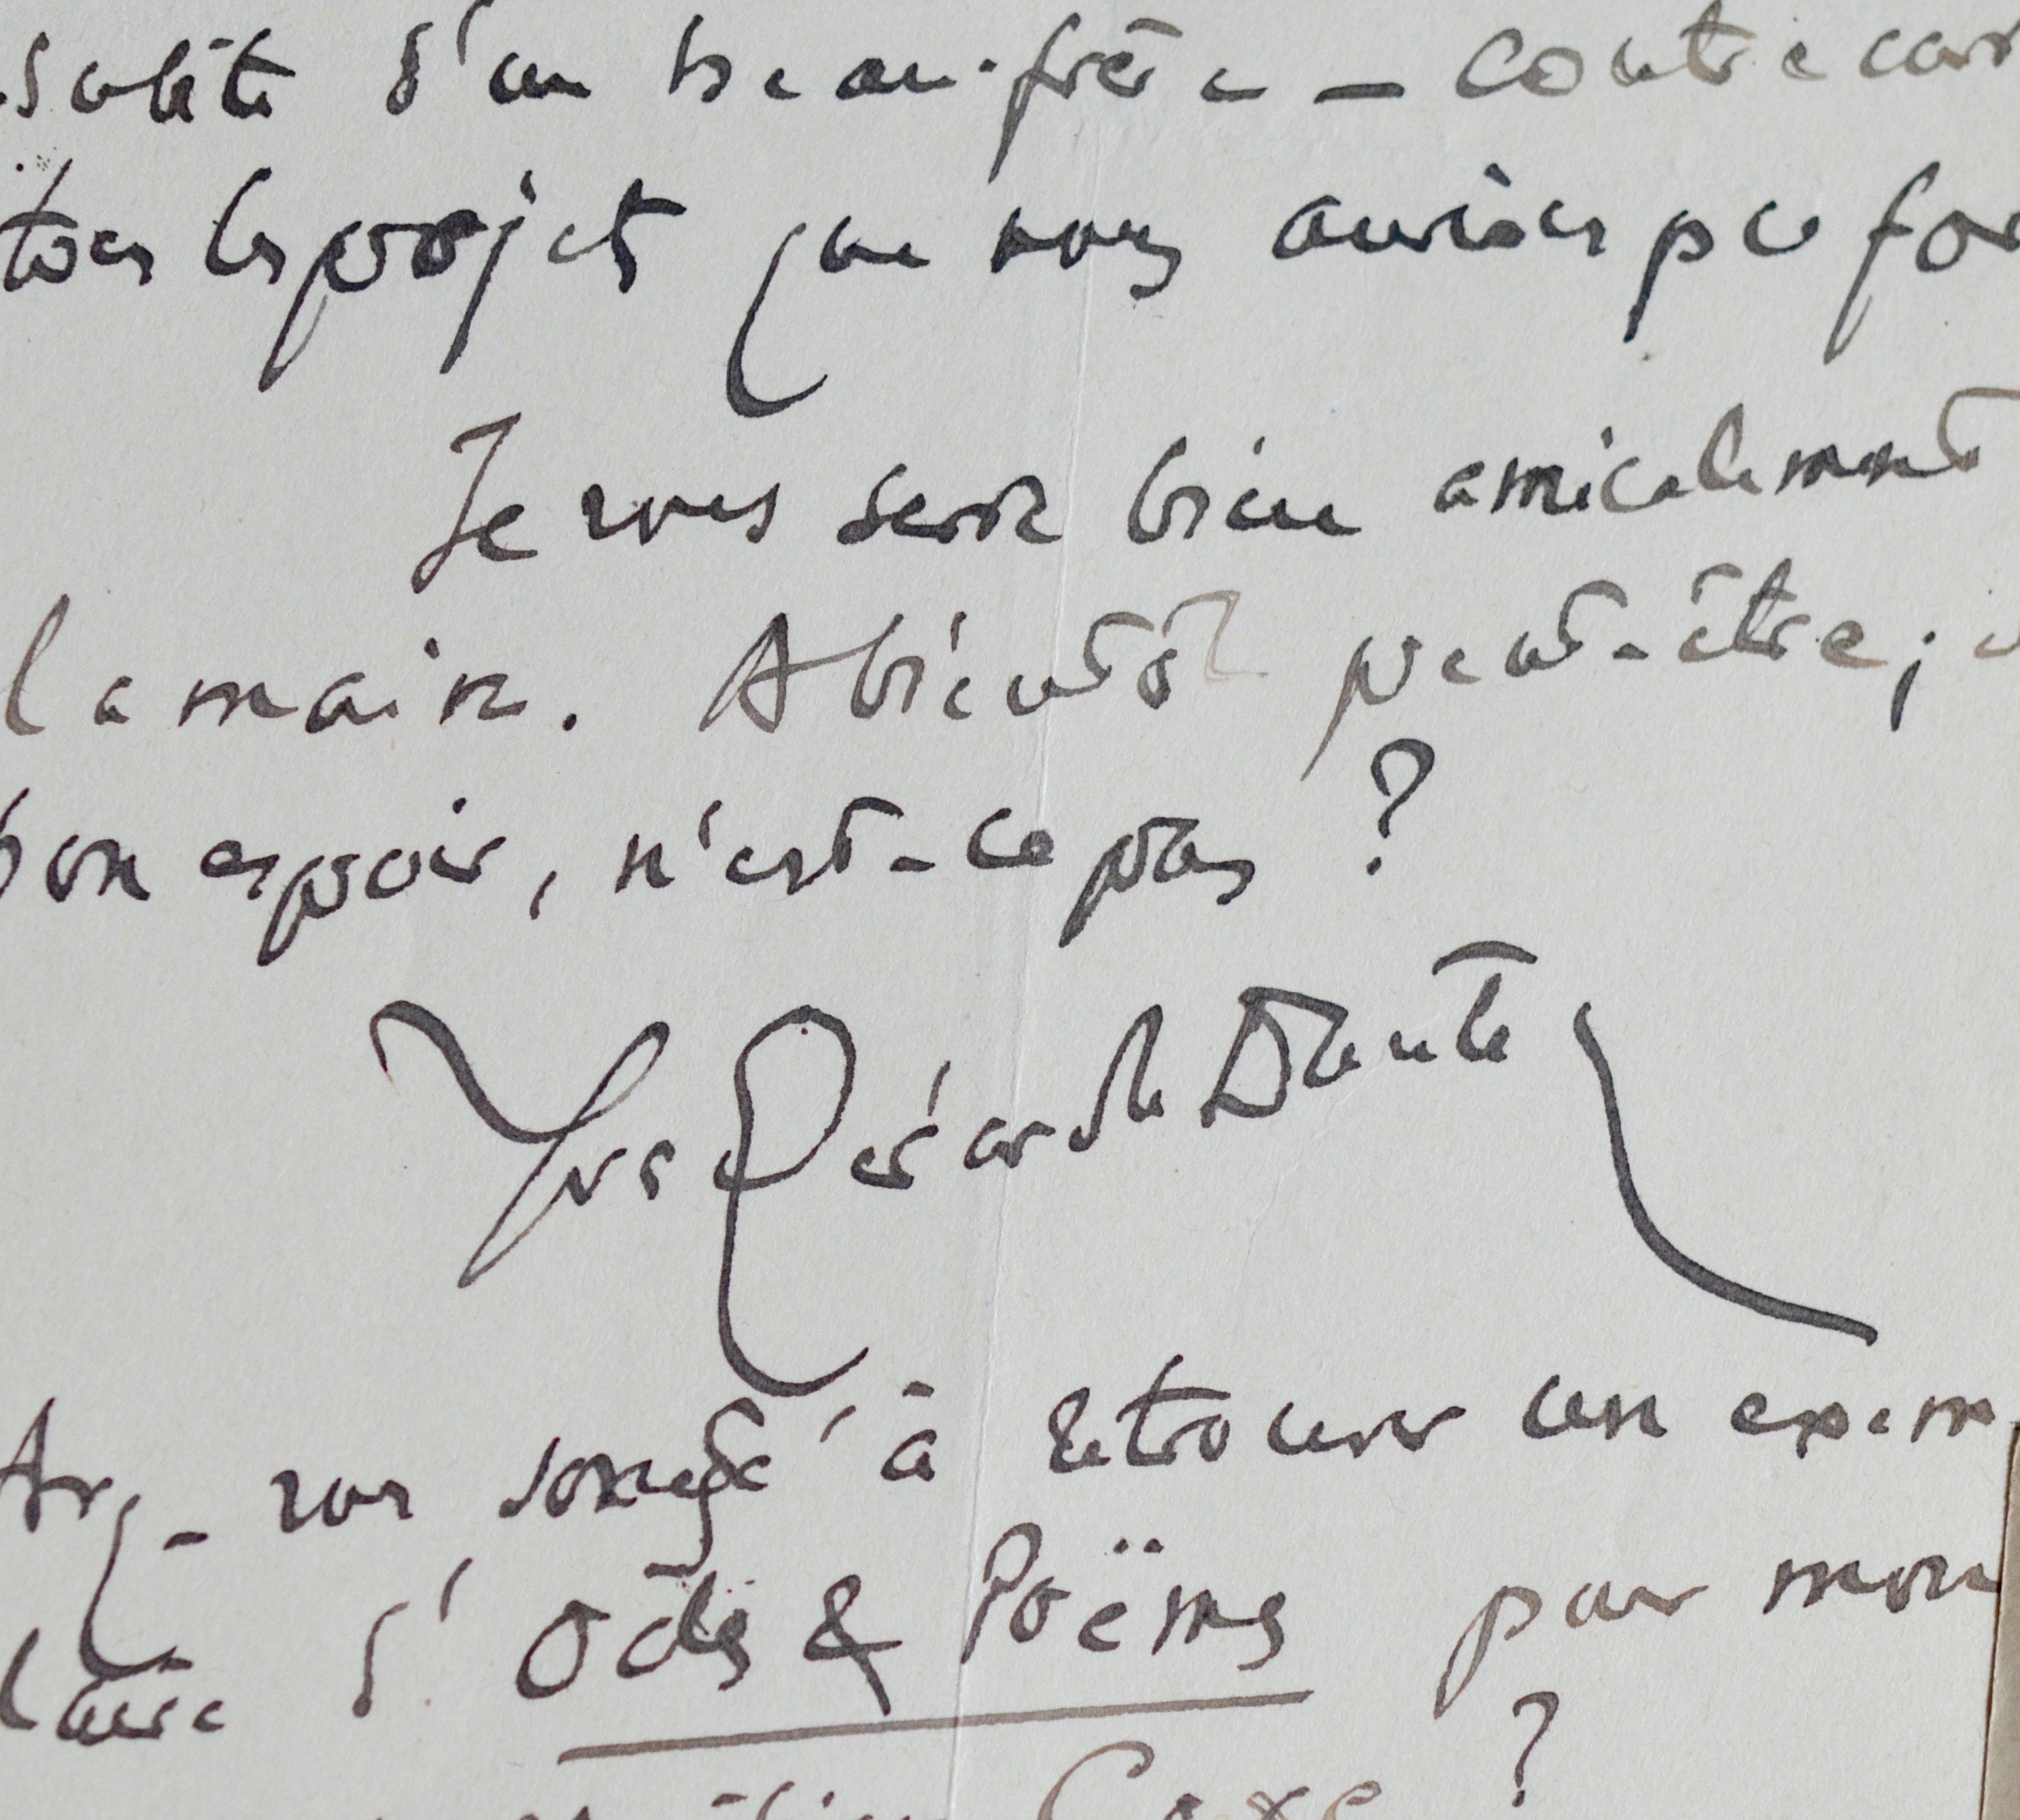 subite d'un beau-frère — contrecar
tous les projets que nous aurions pu for
Je vous serre bien amicalement
la main. A bientôt peut-être;
bon espoir, n'est-ce pas ?
Yves Gérard le Dantec
Av. vous songé à retrouver un exem
laire d' Odes & Poëmes pour mon
?